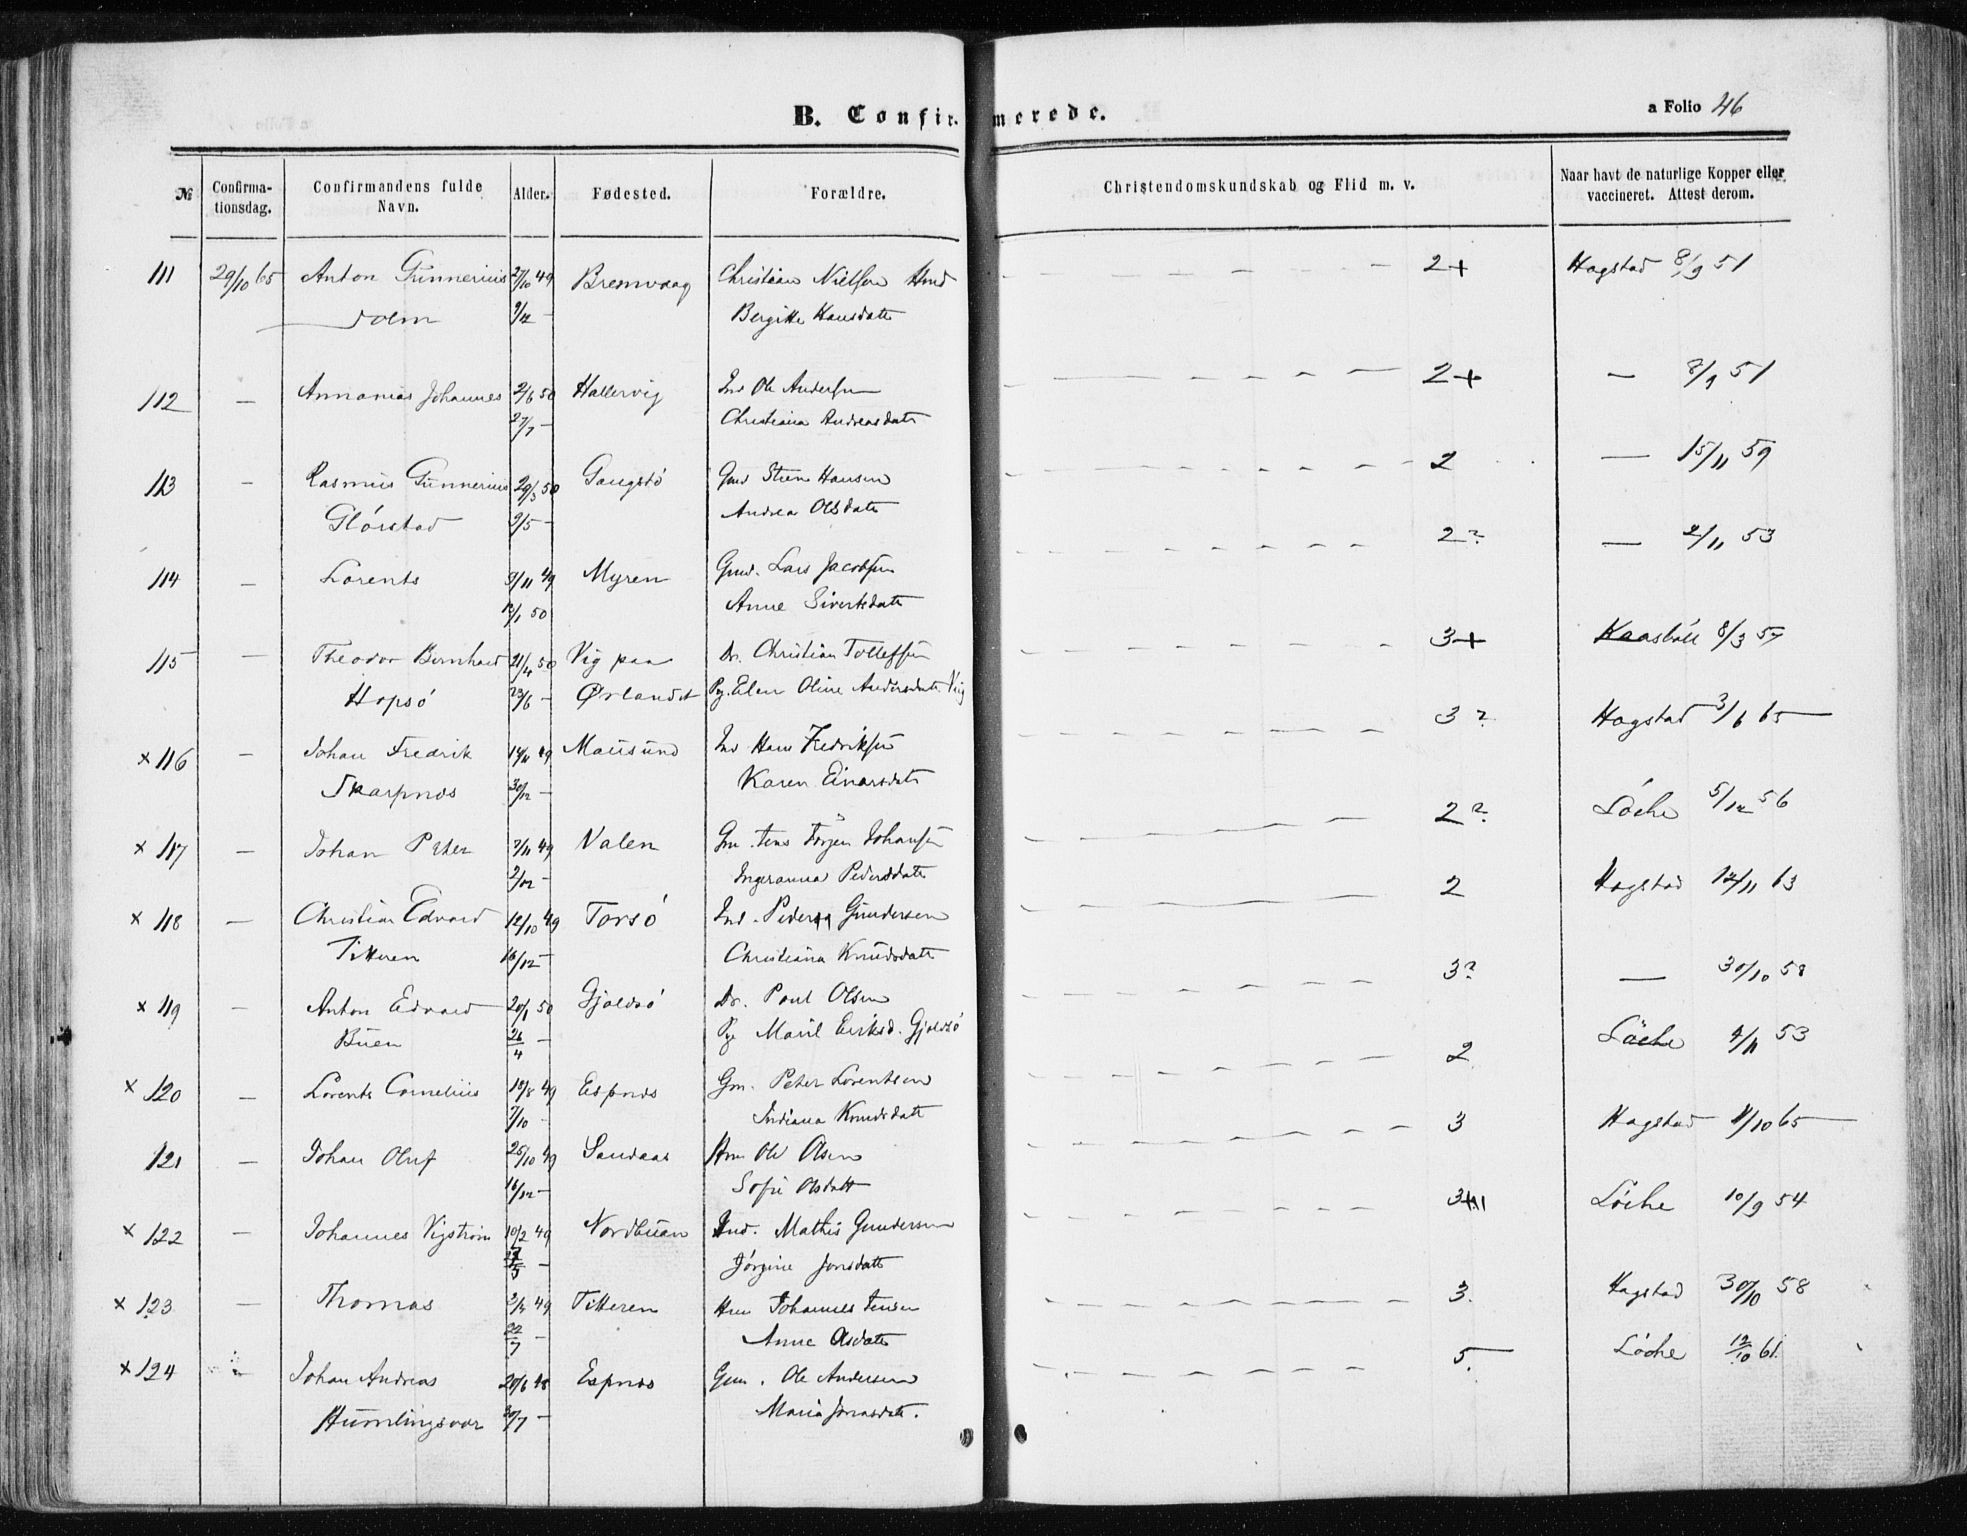 B. Confirmerede.
a Folio 46
№ Confirmationsdag. Confirmandens fulde Navn. Alder. Fødested. Forældre. Christendomskundskab og Flid m. v. Naar havt de naturlige Kopper eller vaccineret. Attest derom.
111 29/10 65 Anton Gunnerius 27/10 49 Bremvaag Christian Nielsen 2+ Hagstad 8/9 51
Dolm 9/12 – Bergitte Hansdatr
112 – Annanias Johannes 2/6 50 Hallervig Ind Ole Andersen 2+ — 8/9 51
27/7 – Christiana Andreasdatr
113 – Rasmus Gunnerius 29/3 50 Gangstö Gmd Steen Hansen 2 — 15/11 59
Glörstad 9/5 – Andrea Olsdatr
114 – Lorents 9/11 49 Myren Gmd. Lars Jacobsen 2? — 2/11 53
13/1 50 Anne Sivertsdatr
115 – Theodor Bernhard 21/4 50 Vig paa Dr. Christian Tollefsen 3+ 8/3 57
Hopsö 23/6 – Ørlandet Pg. Elen Oline Andersdatr. Vig
× 116 – Johan Fredrik 14/11 49 Mausund Ind Hans Fredriksen 3? Hagstad 3/6 65
Skarpnes 30/12 – Karen Einarsdatr
× 117 – Johan Peter 7/11 49 Valen Gm. Jens Jörgen Johansen 2? Löche 5/12 56
2/12 – Ingeranna Pedersdatr
× 118 – Christian Edvard 12/10 49 Torsö Ind. Peder Gundersen 2 Hagstad 12/11 63
Titteren 16/12 – Christiana Knudsdatr
× 119 – Anton Edvard 20/1 50 Gjældsö Dr. Paul Olsen 3? — 30/10 58
Buen 26/4 – Pg Marit Eriksd. Gjæsö
× 120 – Lorents Cornelius 18/8 49 Espnes Gm. Peter Lorentsen 2 Löche 4/11 53
7/10 – Indiana Knudsdatr
121 – Johan Oluf 25/10 49 Sandaas Hm Ole Olsen 3 Hagstad 4/10 65
16/12 – Sofie Olsdatt
× 122 – Johannes Vigström 10/2 49 Nordbuan Ind. Mathis Gundersen 3+ Löche 10/9 54
Jörgine Jonsdatr
× 123 – Thomas 49 Titteren Hm Johannes Jensen 3. Hagstad 30/10 58
22/7 – Anne Olsdatr
× 124 – Johan Andreas 20/6 48 Espnes Gm. Ole Andersen 5. Löche 12/10 61.
Humlingsvær 30/7 – Maria Jonasdatr.